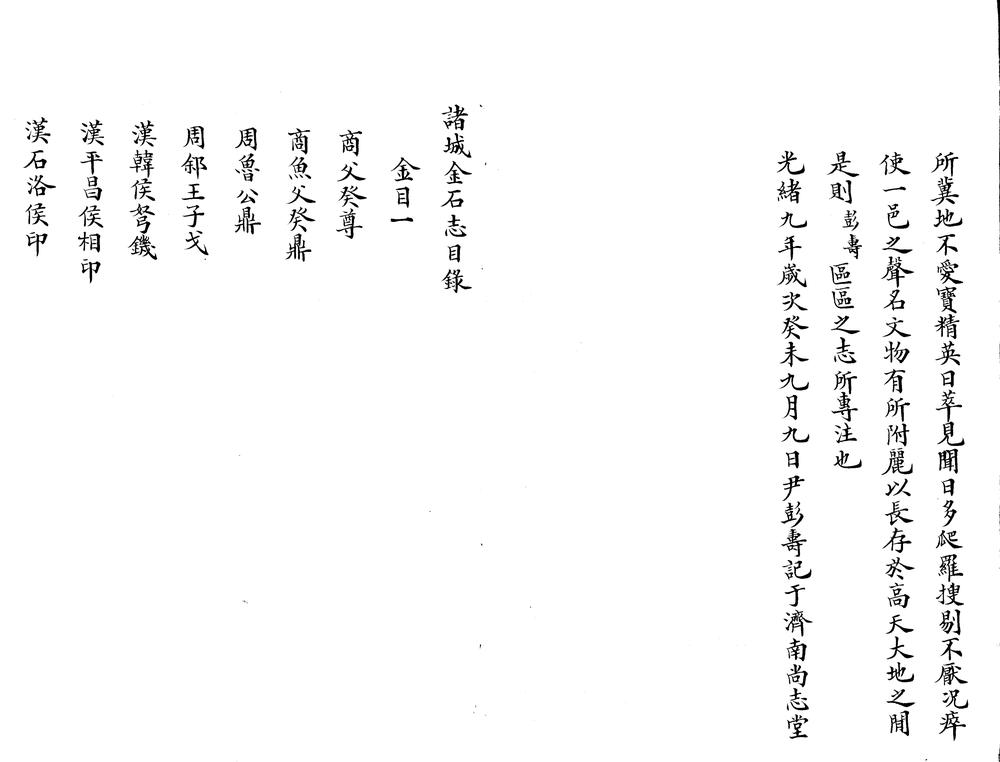 所冀地不愛寶精英日萃見聞日多爬羅搜剔不厭况瘁
使一邑之聲名文物有所附麗以長存於高天大地之閒
是則彭壽區區之志所專注也
光緒九年歲次癸未九月九日尹彭壽記于濟南尚志堂
諸城金石志目錄
金目一
商父癸尊
商魚父癸鼎
周魯公鼎
周郐王子戈
漢韓侯弩鐖
漢平昌侯相印
漢石洛侯印